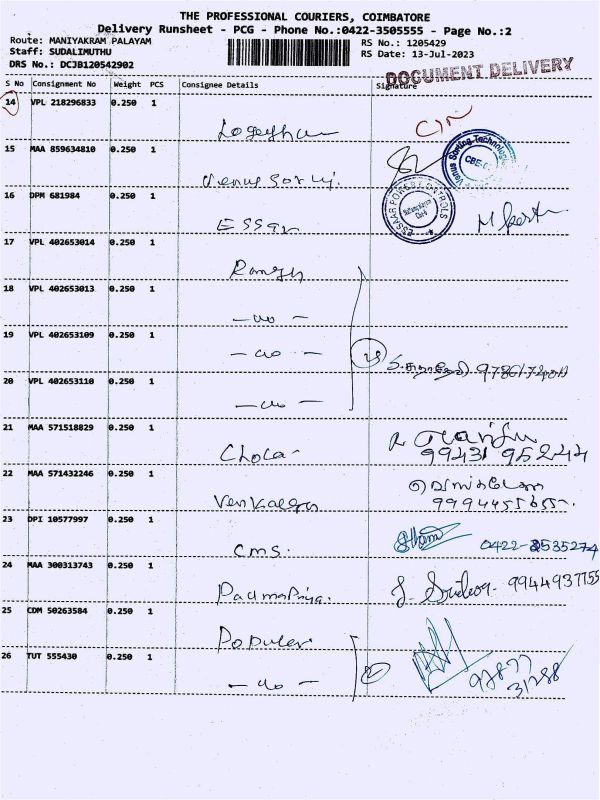 THE PROFESSIONAL COURIERS, COIMBATORE
Delivery Runsheet - PCG - Phone No.:0422-3505555 - Page No.:2
Route: MANIYAKRAM PALAYAM
RS No.: 1205429
Staff: SUDALIMUTHU
RS Date: 13-Jul-2023
DRS No.: DCJB120542902
DOCUMENT DELIVERY
S No Consignment No Weight PCS Consignee Details Signature
14 VPL 218296833 0.250 1
15 MAA 859634810 0.250 1
Venus Sorting Technologies
CBE-6
Venus Sorting.
16 DPM 681984 0.250 1
ESSAR POWER CONTROLS
Essar
17 VPL 402653014 0.250 1
Ramesh
18 VPL 402653013 0.250 1
— do —
19 VPL 402653109 0.250 1
— do —
20 VPL 402653110 0.250 1
— do —
21 MAA 571518829 0.250 1
Chola
99431 95244
22 MAA 571432246 0.250 1
9994455655
23 DPI 10577997 0.250 1
CMS. 0422-2535274
24 MAA 300313743 0.250 1
Padmapriya. 9944937755
25 CDM 50263584 0.250 1
Popular
26 TUT 555430 0.250 1
— do —
97877
31288